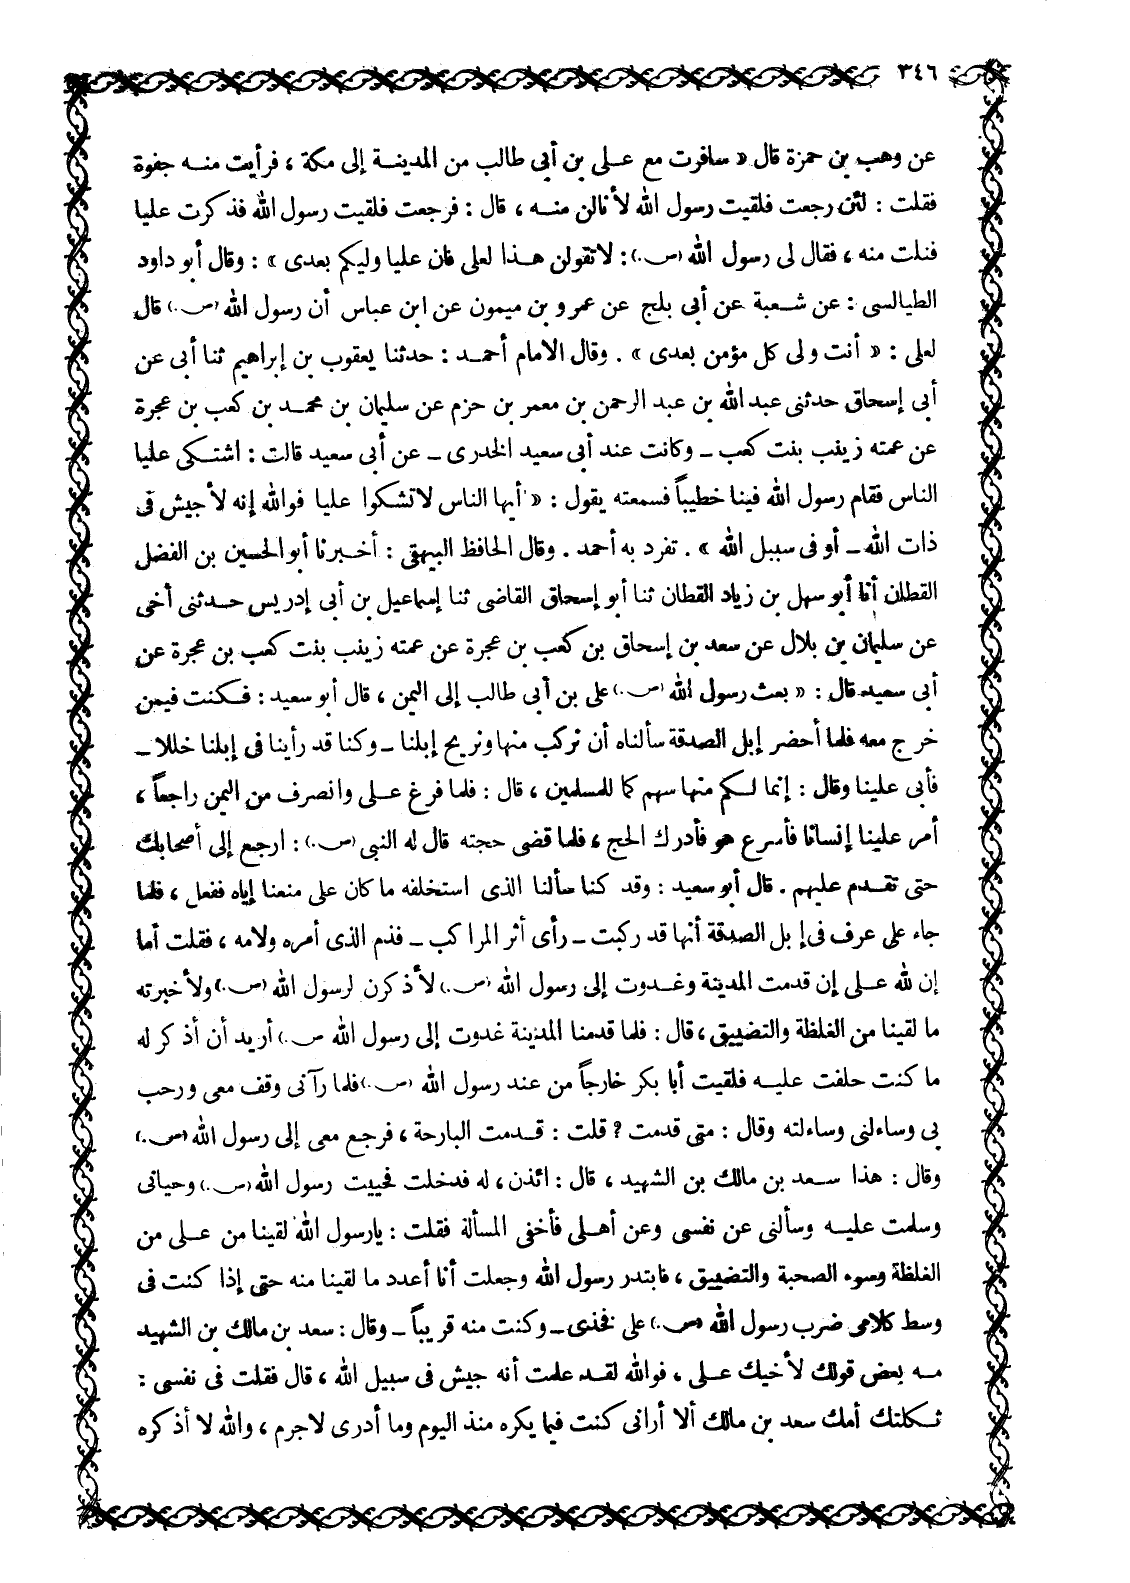 ٣٤٦
عن وهب بن حمزة قال « سافرت مع على بن أبى طالب من المدينة إلى مكة ، فرأيت منه جفوة
فقلت : لئن رجعت فلقيت رسول الله لأنالن منه ، قال : فرجعت فلقيت رسول الله فذكرت عليا
فنلت منه ، فقال لى رسول الله (ص.): لاتقولن هذا لعلى فان عليا وليكم بعدى » : وقال أبو داود
الطيالسى : عن شعبة عن أبى بلج عن عمرو بن ميمون عن ابن عباس أن رسول الله (ص.) قال
لعلى : « أنت ولى كل مؤمن بعدى » . وقال الامام أحمد : حدثنا يعقوب بن إبراهيم ثنا أبى عن
أبى إسحاق حدثنى عبد الله بن عبد الرحمن بن معمر بن حزم عن سليمان بن محمد بن كعب بن عجرة
عن عمته زينب بنت كعب ــ وكانت عند أبى سعيد الخدرى ــ عن أبى سعيد قالت : اشتكى عليا
الناس فقام رسول الله فينا خطيباً فسمعته يقول : « أيها الناس لاتشكوا عليا فوالله إنه لأجيش فى
ذات الله ــ أو فى سبيل الله » . تفرد به أحمد . وقال الحافظ البيهقى : أخبرنا أبو الحسين بن الفضل
القطان أنا أبو سهل بن زياد القطان ثنا أبو إسحاق القاضى ثنا إسماعيل بن أبى إدريس حدثنى أخى
عن سليمان بن بلال عن سعد بن إسحاق بن كعب بن عجرة عن عمته زينب بنت كعب بن عجرة عن
أبى سعيد قال : « بعث رسول الله (ص.) على بن أبى طالب إلى اليمن ، قال أبو سعيد : فكنت فيمن
خرج معه فلما أحضر إبل الصدقة سألناه أن نركب منها ونريح إبلنا ــ وكنا قد رأينا فى إبلنا خللا ــ
فأبى علينا وقال : إنما لكم منها سهم كما للمسلمين ، قال : فلما فرغ على وانصرف من اليمن راجعاً ،
أمر علينا إنسانا فأسرع هو فأدرك الحج ، فلما قضى حجته قال له النبى (ص.) : ارجع إلى أصحابك
حتى تقدم عليهم . قال أبو سعيد : وقد كنا سألنا الذى استخلفه ما كان على منعنا إياه ففعل ، فلما
جاء على عرف فى إبل الصدقة أنها قد ركبت ــ رأى أثر المراكب ــ فذم الذى أمره ولامه ، فقلت أما
إن لله على إن قدمت المدينة وغدوت إلى رسول الله (ص.) لأذكرن لرسول الله (ص.) ولأخبرته
ما لقينا من الغلظة والتضييق ، قال : فلما قدمنا المدينة غدوت إلى رسول الله ص.) أريد أن أذكر له
ما كنت حلفت عليه فلقيت أبا بكر خارجاً من عند رسول الله (ص.) فلما رآنى وقف معى ورحب
بى وساءلنى وساءلته وقال : متى قدمت ؟ قلت : قدمت البارحة ، فرجع معى إلى رسول الله (ص.)
وقال : هذا سعد بن مالك بن الشهيد ، قال : ائذن ، له فدخلت فحييت رسول الله (ص.) وحيانى
وسلمت عليه وسألنى عن نفسى وعن أهلى فأخفى المسألة فقلت : يارسول الله لقينا من على من
الغلظة وسوء الصحبة والتضييق ، فابتدر رسول الله وجعلت أنا أعدد ما لقينا منه حتى إذا كنت فى
وسط كلامى ضرب رسول الله (ص.) على فخذى ــ وكنت منه قريباً ــ وقال : سعد بن مالك بن الشهيد
مه بعض قولك لأخيك على ، فوالله لقد علمت أنه جيش فى سبيل الله ، قال فقلت فى نفسى :
ثكلتك أمك سعد بن مالك ألا أرانى كنت فيما يكره منذ اليوم وما أدرى لاجرم ، والله لا أذكره